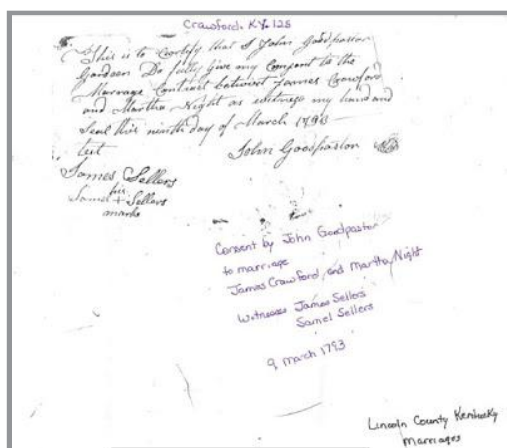 Crawford. KY. 125
This is to Certify that I John Goodpastor
Gardeen Do fully Give my Consent to the
Marrage Contract betwixt James Crawford
and Martha Night as witness my hand and
Seal this ninth day of March 1793
test
John Goodpastor
James Sellers
his
Samel + Sellers
marke
Consent by John Goodpastor
to marriage
James Crawford and Martha Night
Witnesses James Sellers
Samel Sellers
9 March 1793
Lincoln County Kentucky
Marriages